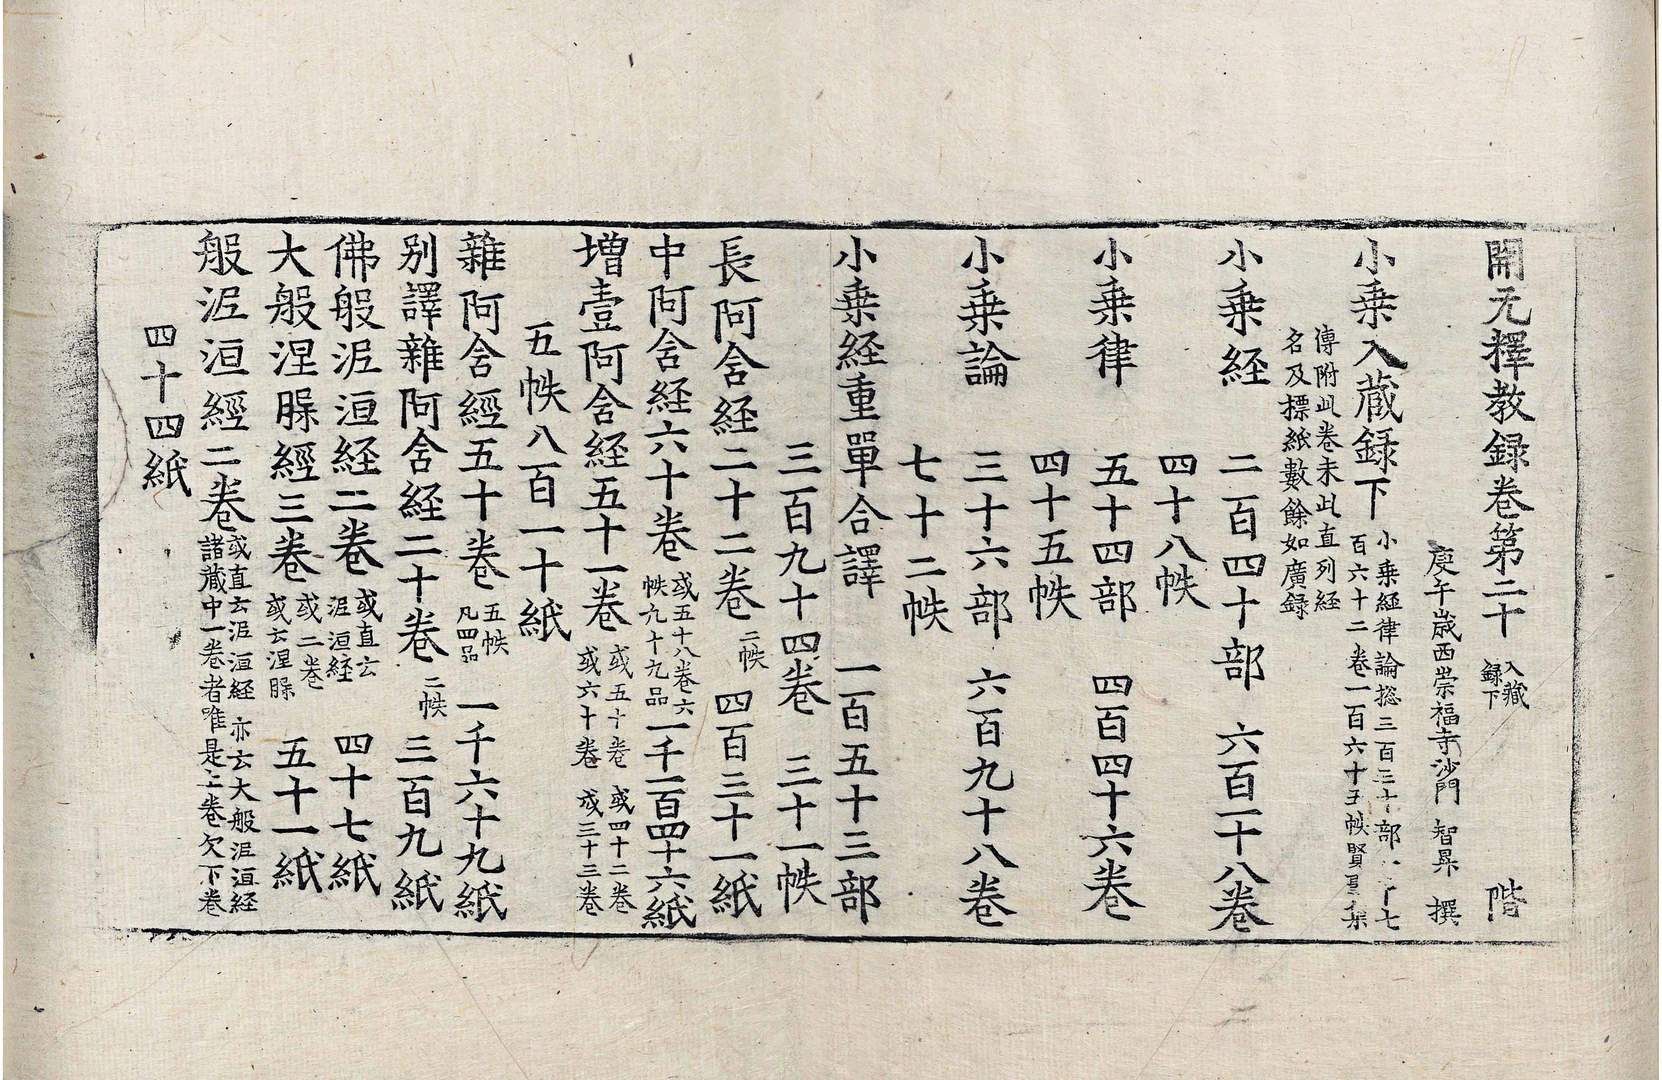 開元釋教録卷第二十 入藏録下 階
庚午歳西崇福寺沙門 智昇 撰
小乗入蔵録下 小乗経律論㧾三百三十部 七百六十二卷一百六十五帙賢聖集
傳附此卷未此直列経名及摽紙數餘如廣録
小乗経 二百四十部 六百一十八卷
四十八帙
小乗律 五十四部 四百四十六卷
四十五帙
小乗論 三十六部 六百九十八卷
七十二帙
小乗経重單合譯 一百五十三部
三百九十四卷 三十一帙
長阿含経二十二卷 二帙 四百三十一紙
中阿含経六十卷 或五十八卷六帙九十九品 一千一百四十六紙
増壹阿含経五十一卷 或五十卷 或四十二卷 或六十卷 或三十三卷
五帙八百一十紙
雜阿含經五十卷 五帙凡四品 一千六十九紙
別譯雜阿含経二十卷 二帙 三百九紙
佛般泥洹経二卷 或直云泥洹経 四十七紙
大般涅槃經三卷 或二卷或云涅槃 五十一紙
般泥洹經二卷 或直云泥洹経 亦云大般泥洹経諸藏中一卷者唯是上卷欠下卷
四十四紙